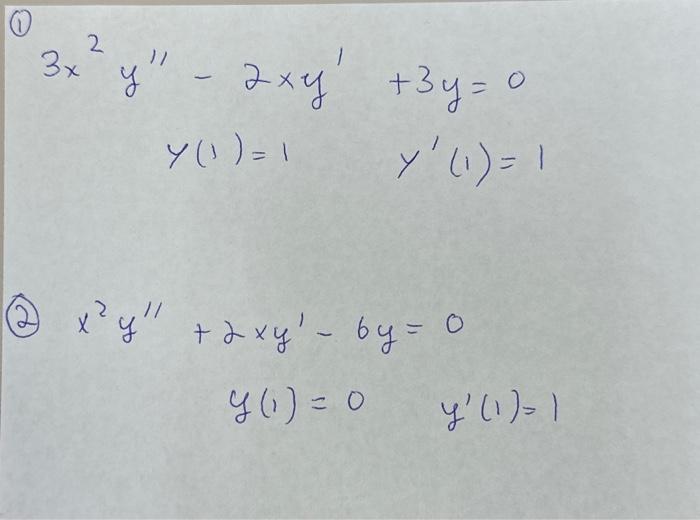 ①
3x² y'' - 2xy' + 3y = 0
y(1) = 1 y'(1) = 1
② x² y'' + 2xy' - 6y = 0
y(1) = 0 y'(1) = 1